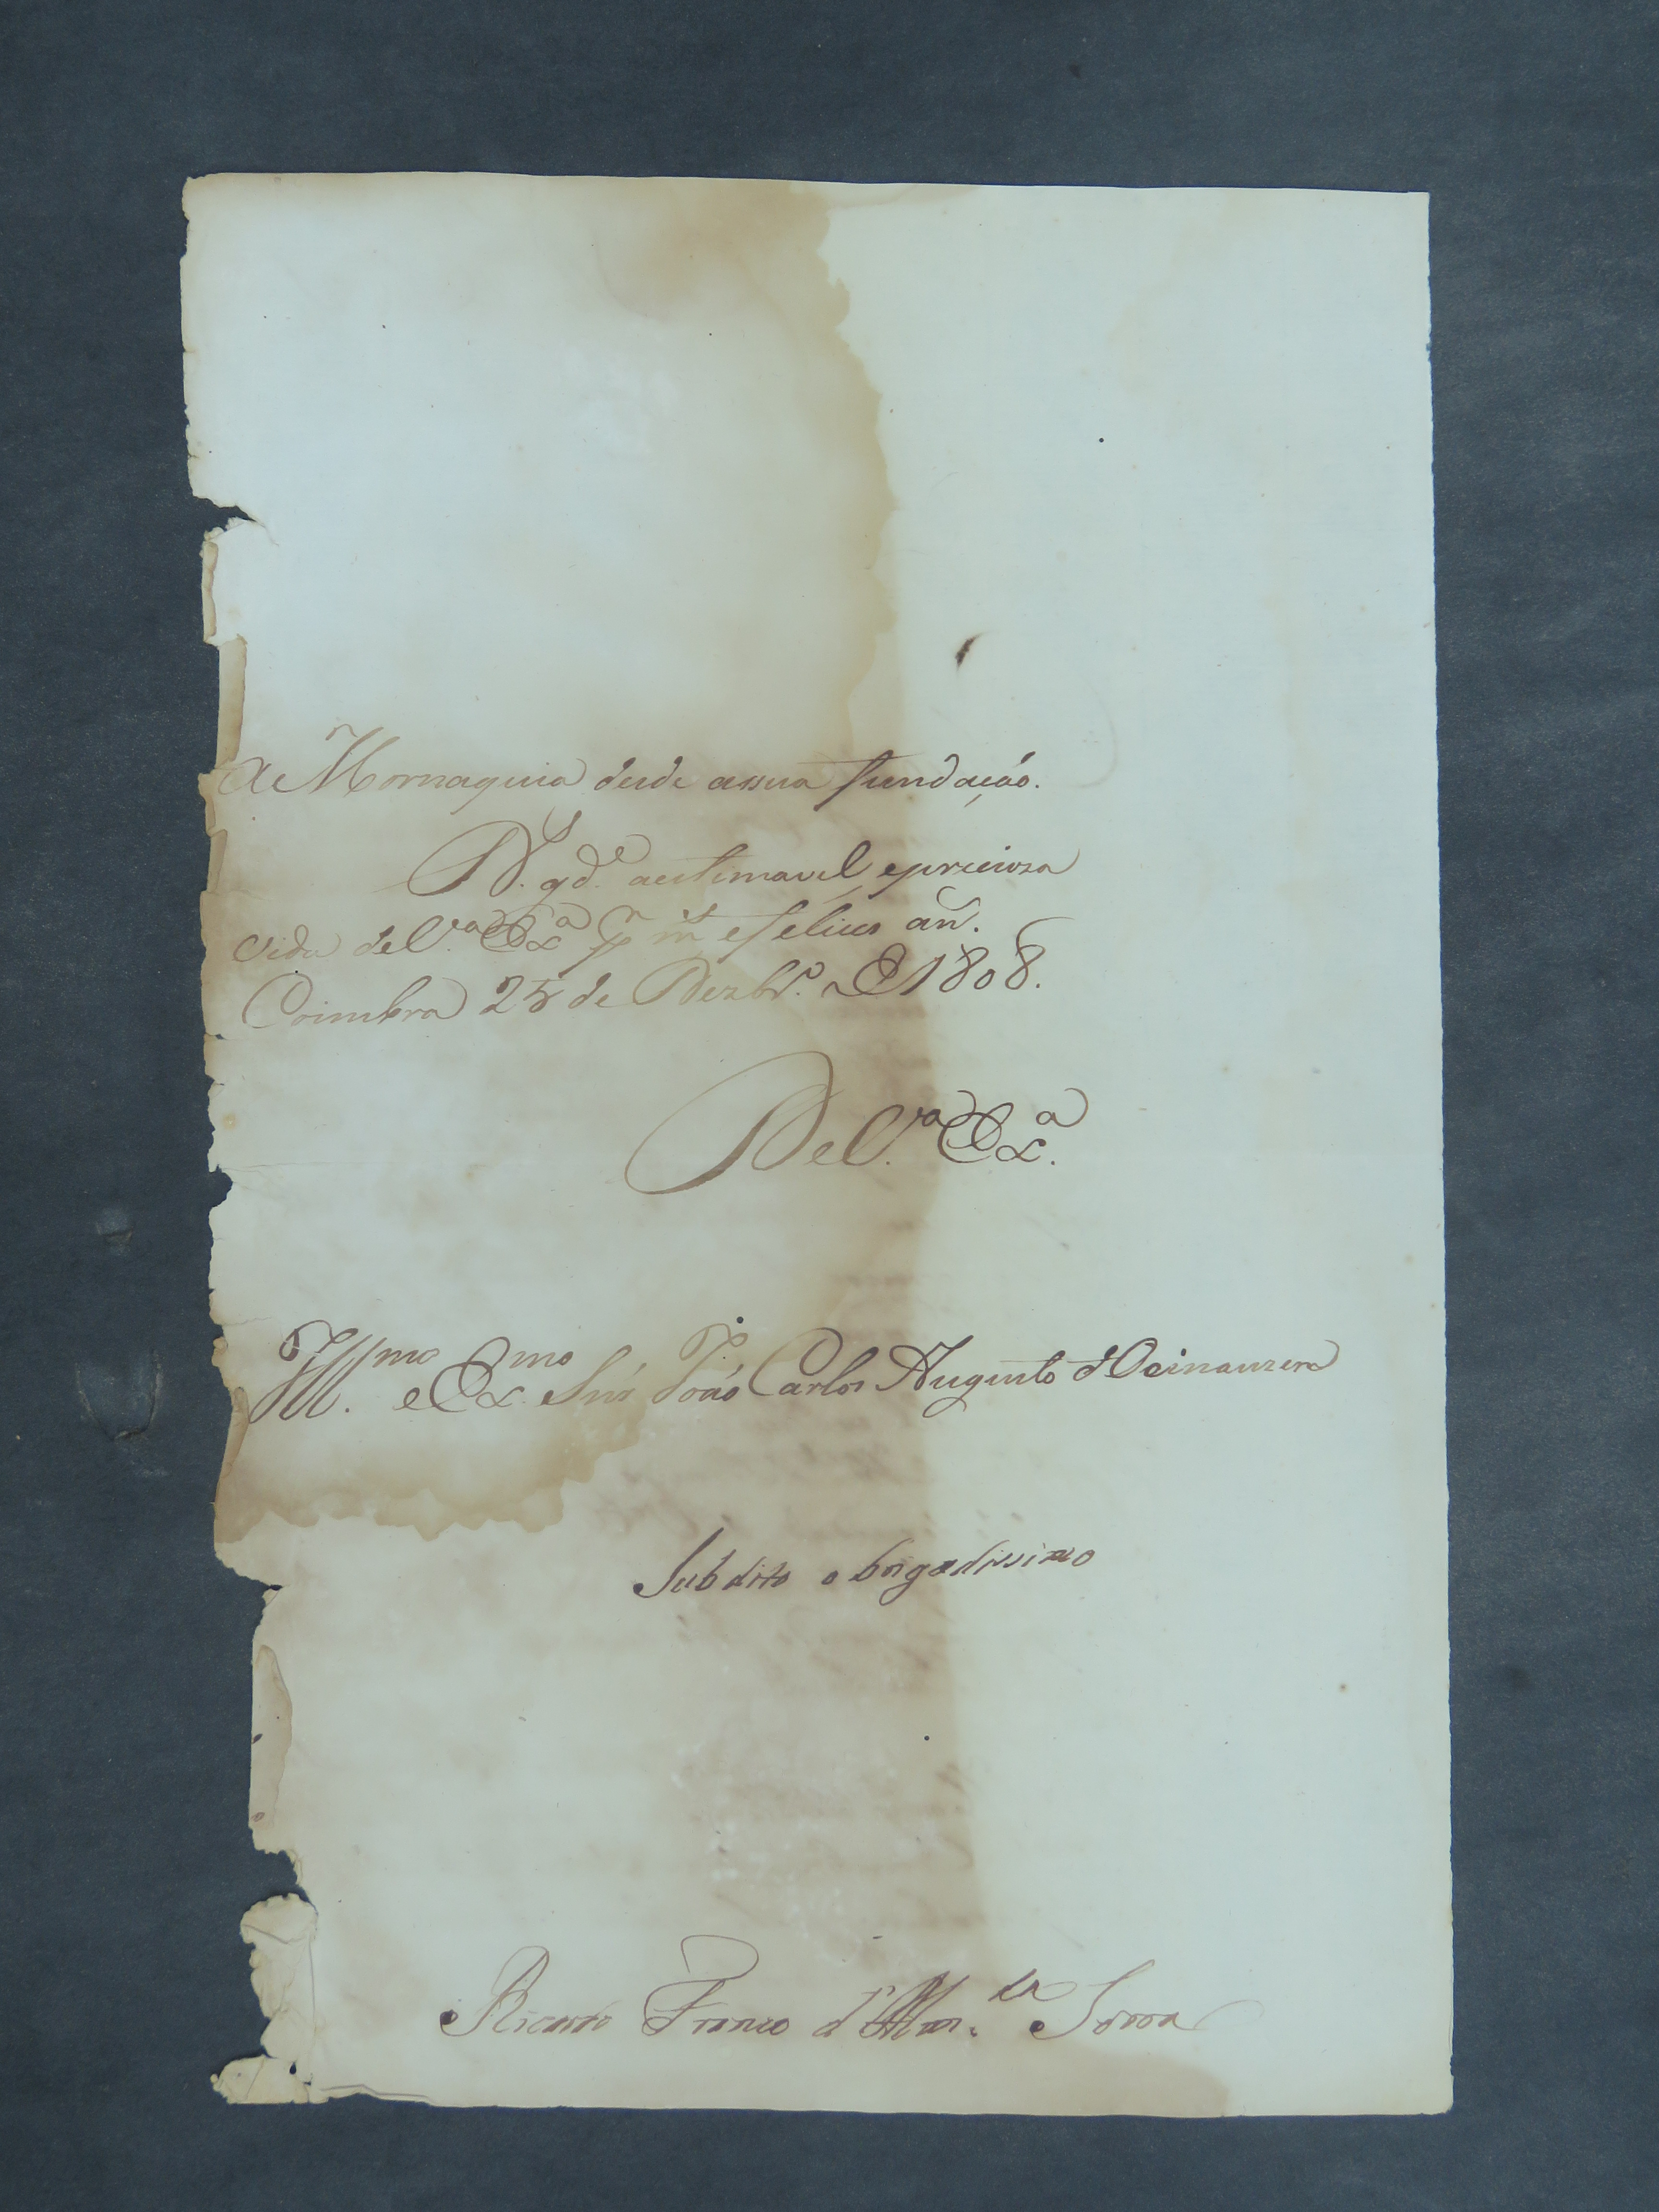 a Mornaquia desde assua fundação.
D.s g.de aestimavel, epreciosa
vida de V.a Ex.a p.r m.s efelices an.
Coimbra 25 de Dezbr.o de 1808.
De V.a Ex.a
Ill.mo e Ex.mo Snr. João Carlos Augusto d'Oeinauzem
Subdito obrigadissimo
Ricardo Franco d'Alm.da Serra